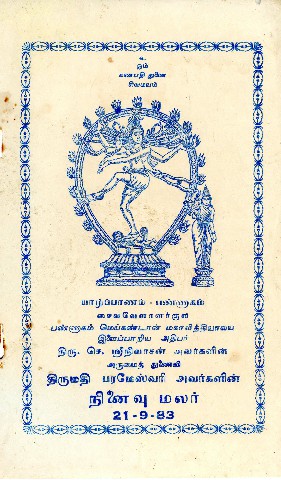 உ
ஓம்
கணபதி துணை
சிவமயம்
யாழ்ப்பாணம் - பண்ணாகம்
சைவவேளாளர்குல
பண்ணாகம் மெய்கண்டான் மகாவித்தியாலய
இளைப்பாறிய அதிபர்
திரு. செ. ஸ்ரீநிவாசன் அவர்களின்
அருமைத் துணைவி
திருமதி பரமேஸ்வரி அவர்களின்
நினைவு மலர்
21-9-83